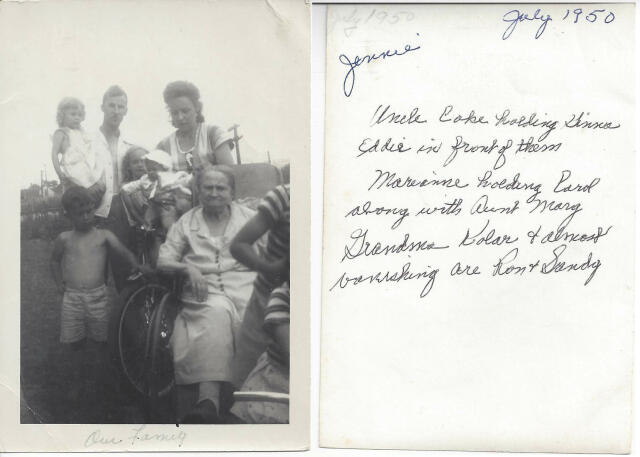 Our Family
July 1950
July 1950
Jennie
Uncle Coke holding Ginna
Eddie in front of them
Marianne holding Carol
along with Aunt Marg
Grandma Kolar & almost
vanishing are Ron & Sandy